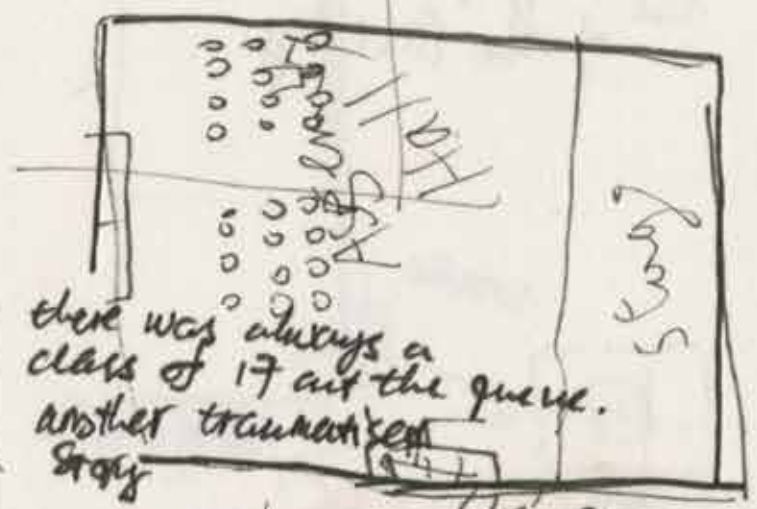 Assembly
Hall
Stage
there was always a
class of 17 the queue.
another traumatisem
Story